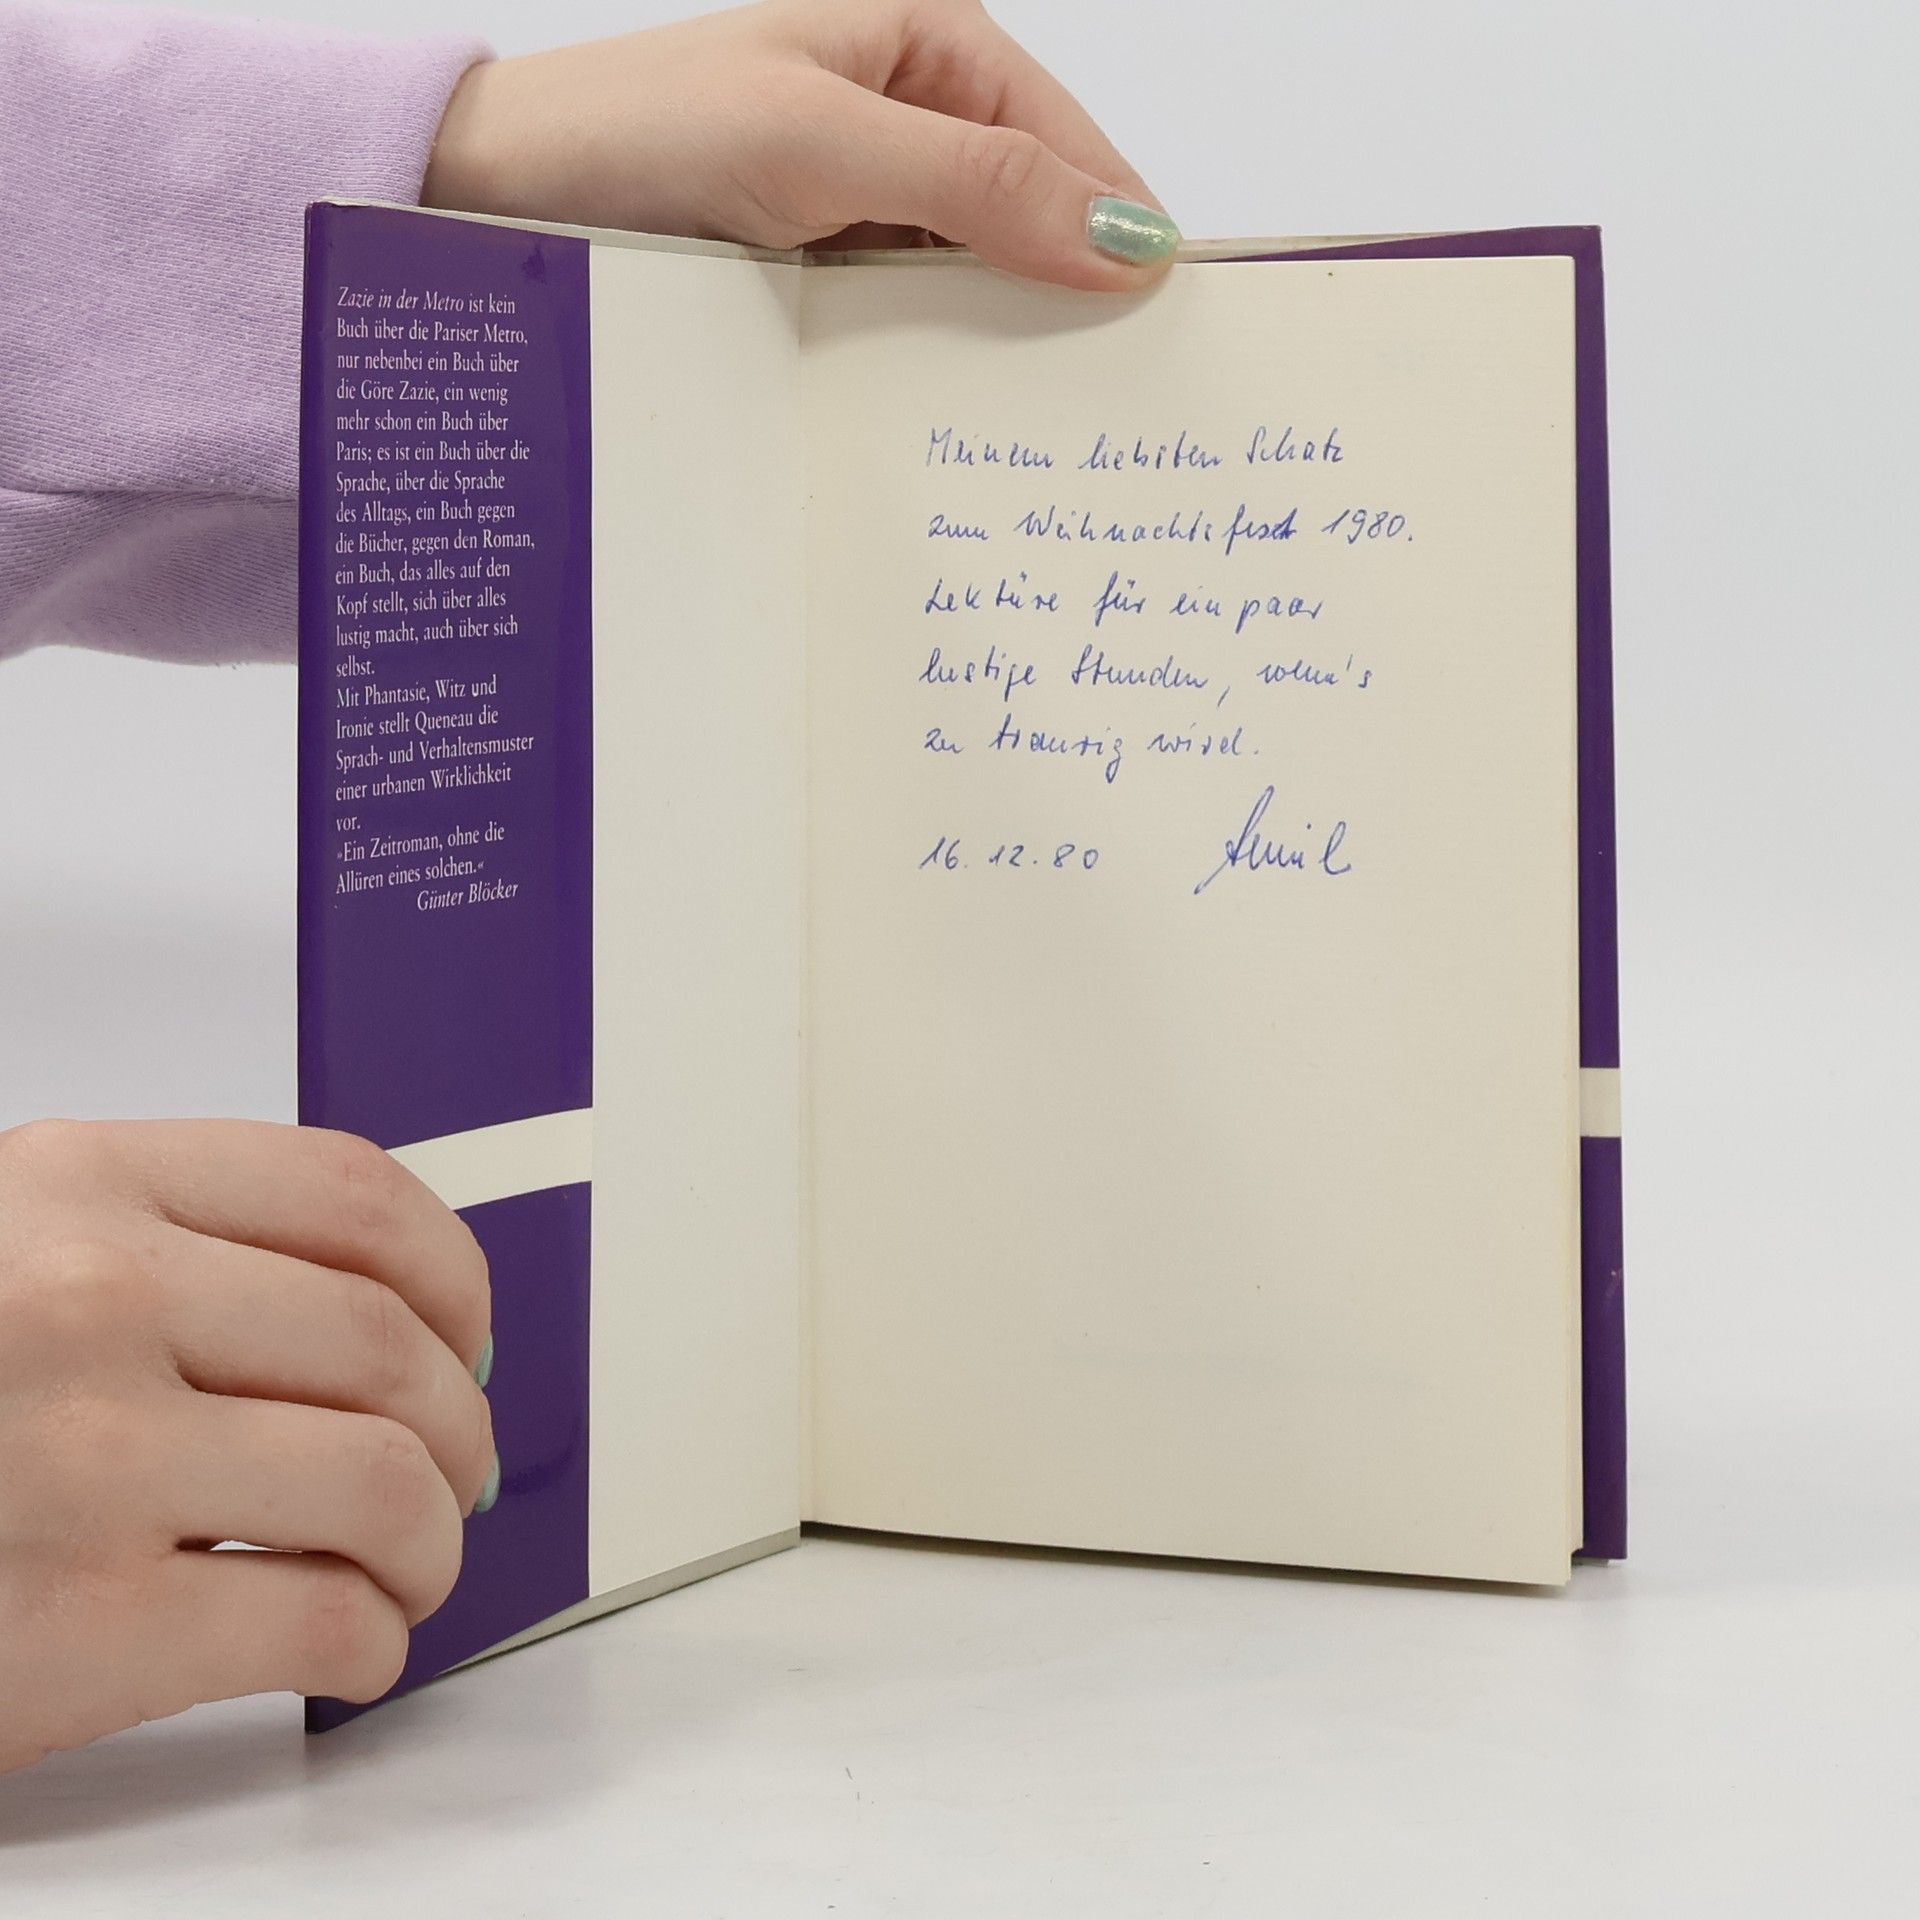 Zazie in der Metro ist kein
Buch über die Pariser Metro,
nur nebenbei ein Buch über
die Göre Zazie, ein wenig
mehr schon ein Buch über
Paris; es ist ein Buch über die
Sprache, über die Sprache
des Alltags, ein Buch gegen
die Bücher, gegen den Roman,
ein Buch, das alles auf den
Kopf stellt, sich über alles
lustig macht, auch über sich
selbst.
Mit Phantasie, Witz und
Ironie stellt Queneau die
Sprach- und Verhaltensmuster
einer urbanen Wirklichkeit
vor.
»Ein Zeitroman, ohne die
Allüren eines solchen.«
Günter Blöcker
Meinem liebsten Schatz
zum Weihnachtsfest 1980.
Lektüre für ein paar
lustige Stunden, wenn's
zu traurig wird.
16.12.80